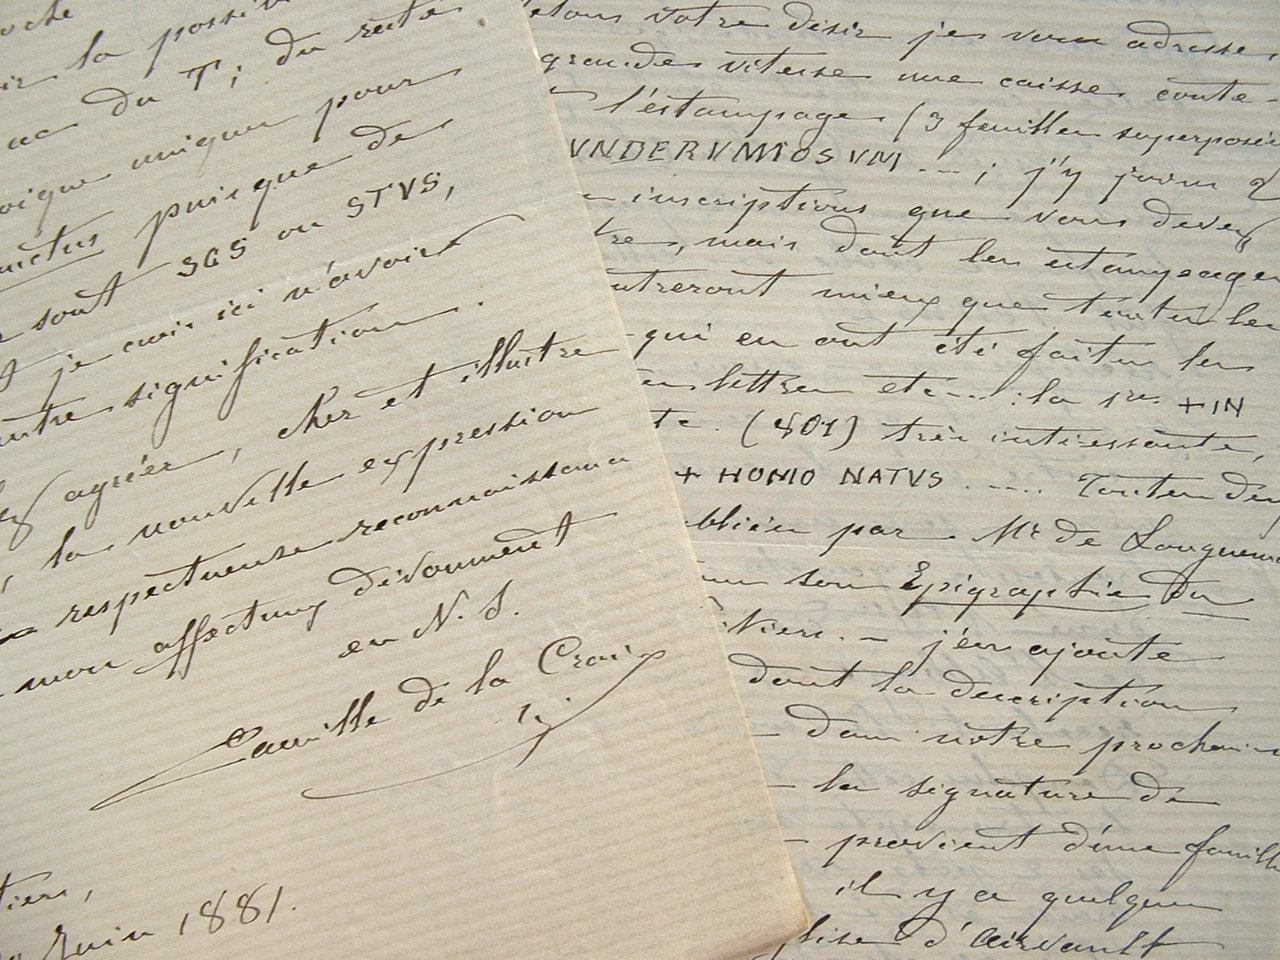 la possi
ac du T; du reste
oique unique pour
nctus puisque de
sont SCS ou STVS,
je crois ici n'avoir
autre signification.
agréer, cher et illustre
, la nouvelle expression
respectueuse reconnaissance
mon affectueux dévouement
en N. S.
Camille de la Croix
s.j.
tiers,
Juin 1881.
votre désir je vous adresse,
grande vitesse une caisse conte-
l'estampage (3 feuilles superposées
VNDERVMIOSVM ...; j'y joins 2
inscriptions que vous devez
tre, mais dont les estampages
ntreront mieux que toutes les
qui en ont été faites les
lettres etc...: la 1re +IN
te. (801) très intéressante,
+ HOMO NATVS ..... Toutes deux
ubliées par Mr de Longuemar
son Epigraphie du
itiers. – j'en ajoute
dont la description
– dans notre prochain
– la signature de
– provient d'une fouille
il y a quelques
glise d'Airvault